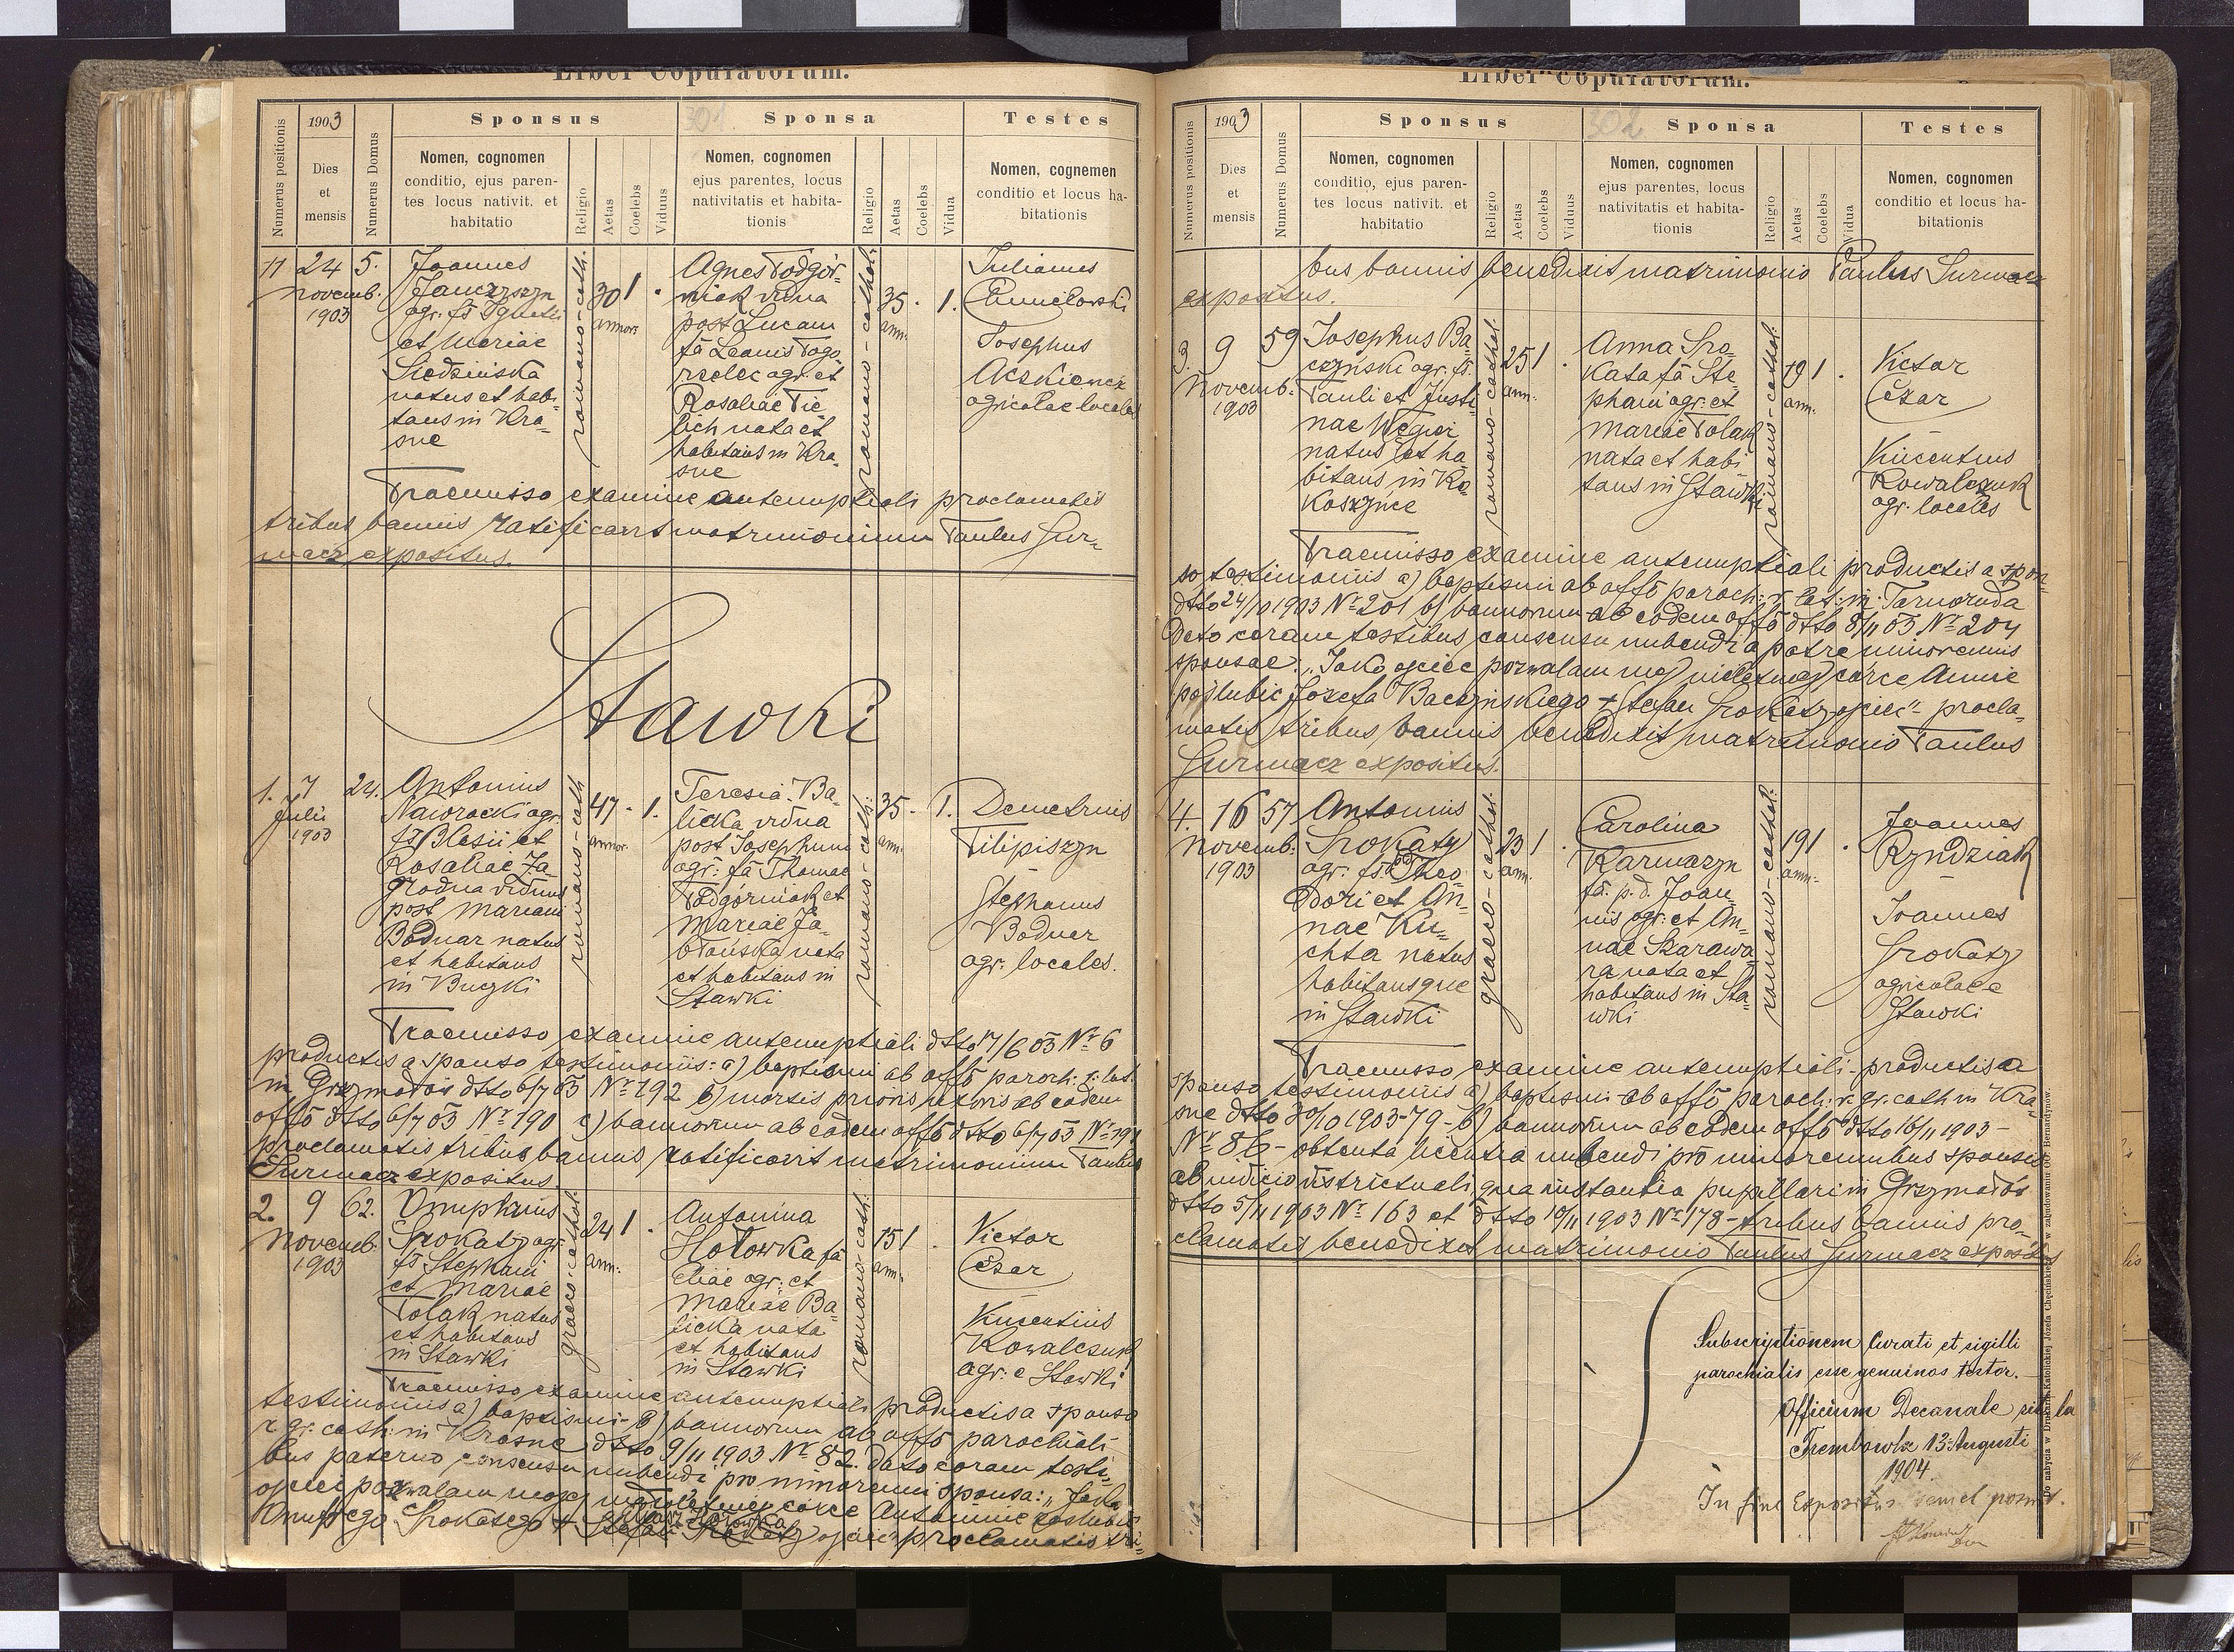 Liber Copulatorum.
Numerus positionis
1903
Dies
et
mensis
Numerus Domus
Sponsus
Nomen, cognomen
conditio, ejus paren-
tes locus nativit. et
habitatio
Religio
Aetas
Coelebs
Viduus
301
Sponsa
Nomen, cognomen
ejus parentes, locus
nativitatis et habita-
tionis
Religio
Aetas
Coelebs
Vidua
Testes
Nomen, cognemen
conditio et locus ha-
bitationis
11
24
novemb.
1903
5.
Joannes
Janczyszyn
agr. fs Ignatii
et Mariae
Siedzińska
natus et habi-
tans in Kra-
sne
romano-cath.
30
annor.
1
.
Agnes Podgór-
niak vidua
post Lucam
fa Leonis Pogo-
rzelec agr. et
Rosaliae Tic
bich nata et
habitans in Kra-
sne
romano-cathol.
35
ann.
.
1.
Julianus
Josephus
agricolae locales
Praemisso examine antenuptiali proclamatis
tribus bannis ratificavit matrimonium Paulus Sur-
macz expositus.
Stawki
1.
7
Julii
1903
24.
Antonius
Nawrocki agr.
fs Blasii et
Rosaliae Za-
grodna viduus
post Mariam
Bodnar natus
et habitans
in Buczki
romano-cath
47
annor.
-
1.
Teresia Ba-
licka vidua
post Josephum
agr: fa Thomae
Podgórniak et
Mariae Ja-
błońska nata
et habitans in
Stawki
romano-cath:
35
ann.
-
1.
Demetrius
Filipiszyn
Stephanus
Bodnar
agr. locales.
Praemisso examine antenuptiali dtto 17/6 03 Nr 6
productis a sponso testimoniis: a) baptismi ab offo paroch: r. lat.
in Grzymałów dtto 6/7 03 Nr 192 b) mortis prioris uxoris ab eodem
offo dtto 6/7 03 Nr 190 c) bannorum ab eodem offo dtto 6/7 03 Nr 191
proclamatis tribus bannis ratificavit matrimonium Paulus
Surmacz expositus.
2.
9
Novemb.
1903
62.
Onuphrius
Srokaty agr.
fs Stephani
et Mariae
Polak natus
et habitans
in Stawki
graeco-cathol.
24
ann.
1
.
Antonina
Hołowka fa
Eliae agr. et
Mariae Ba-
licka nata
et habitans
in Stawki
romano-cath.
15
ann.
1
.
Victor
Czar
Vincentius
Kowalczuk
agr. e Stawki
Praemisso examine antenuptiali productis a sponso
testimoniis a) baptismi - b) bannorum ab offo parochiali
r. gr. cath. in Krasne dtto 9/11 1903 Nr 82. Dato coram testi-
bus paterno consensu nubendi pro minorenni sponsa: „Jako
ojciec pozwalam mojej małoletniej córce Antoninie zaślubić
Onufrego Srokatego + ojciec" proclamatis tri-
Liber Copulatorum.
Numerus positionis
1903
Dies
et
mensis
Numerus Domus
Sponsus
Nomen, cognomen
conditio, ejus paren-
tes locus nativit. et
habitatio
Religio
Aetas
Coelebs
Viduus
302
Sponsa
Nomen, cognomen
ejus parentes, locus
nativitatis et habita-
tionis
Religio
Aetas
Coelebs
Vidua
Testes
Nomen, cognomen
conditio et locus ha-
bitationis
bus bannis benedixit matrimonio Paulus Surmacz
expositus.
3.
9
Novemb.
1903
59
Josephus Ba-
czyński agr. fs.
Pauli et Justi-
nae Węgier
natus et ha
bitans in Ko-
koszyńce
romano-cathol.
25
ann.
1
.
Anna Sro-
kata fa Ste-
phani agr. et
Mariae Polak
nata et habi
tans in Stawki
romano-cathol.
19
ann.
1
.
Victor
Czar
Vincentius
Kowalczuk
agr. locales
Praemisso examine antenuptiali productis a spon-
so testimoniis a) baptismi ab offo paroch: r. lat: in Tarnoruda
dtto 24/10 1903 Nr 201 b) bannorum ab eodem offo dtto 8/11 03 Nr 204
Dato coram testibus consensu nubendi a patre minorennis
sponsae: „Jako ojciec pozwalam mej nieletniej córce Annie
poślubić Józefa Baczyńskiego + Stefan Srokaty ojciec" procla-
matis tribus bannis benedixit matrimonio Paulus
Surmacz expositus.
4.
16
Novemb:
1903
57
Antonius
Srokaty
agr. fs. Theo-
dori et An-
nae Ku-
chta natus
habitansque
in Stawki
graeco-cathol
23
ann.
1
.
Carolina
Karmazyn
fa. p. d. Joan-
nis agr. et An-
nae Skarawa-
ra nata et
habitans in Sta-
wki
romano-cathol:
19
ann.
1
.
Joannes
Ryndziak
Joannes
Srokaty
agricolae e
Stawki
Praemisso examine antenuptiali - productis a
sponso testimoniis a) baptismi ab offo paroch. r. gr. cath in Kra-
sne dtto 30/10 1903-79 - b) bannorum ab eodem offo dtto 16/11 1903 -
Nr 86 - obtenta licentia nubendi pro minorennibus sponsis
ab iudicio districtuali qua instantia pupillari in Grzymałów
dtto 5/11 1903 Nr 163 et dtto 10/11 1903 Nr 178 - tribus bannis pro-
clamatis benedixit matrimonio Paulus Surmacz expositus
Subscriptionem Curati et sigilli
parochialis esse genuinas testor.
Officium Decanale rit. la
Trembowlae 13. Augusti
1904.
In fine Expositus semel posuit.
Do nabycia w Drukarni Katolickiej Józefa Chęcińskiego w zabudowaniu OO. Bernardynów.